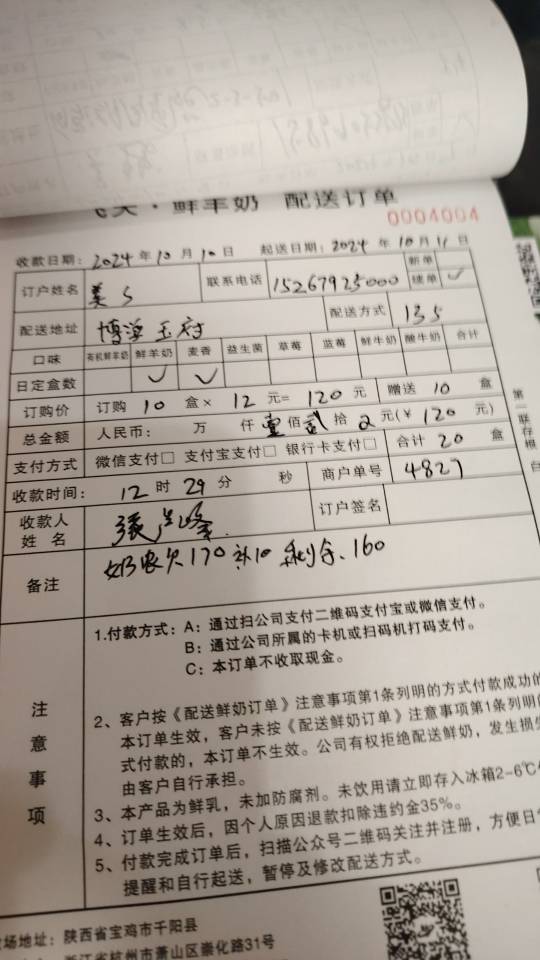 天·鲜羊奶 配送订单
0004004
收款日期：2024年10月10日 起送日期：2024年10月11日
订户姓名 美 联系电话 15267925000 新单 续单 ✓
配送地址 博 玉府 配送方式 135
口味 有机鲜羊奶 鲜羊奶 麦香 益生菌 草莓 蓝莓 鲜牛奶 酸牛奶 合计
日定盒数 ✓ ✓
订购价 订购 10 盒× 12 元= 120 元 赠送 10 盒
总金额 人民币： 万 仟 壹 佰 贰 拾 元(¥ 120 元)
支付方式 微信支付□ 支付宝支付□ 银行卡支付□ 合计 20 盒
收款时间： 12 时 29 分 秒 商户单号 4827
收款人姓名 张 峰 订户签名
备注 奶 欠170 补10 剩余.160
第一联存根 白
注意事项
1.付款方式：A：通过扫公司支付二维码支付宝或微信支付。
B：通过公司所属的卡机或扫码机打码支付。
C：本订单不收取现金。
2、客户按《配送鲜奶订单》注意事项第1条列明的方式付款成功的
本订单生效，客户未按《配送鲜奶订单》注意事项第1条列明的
式付款的，本订单不生效。公司有权拒绝配送鲜奶，发生损失
由客户自行承担。
3、本产品为鲜乳，未加防腐剂。未饮用请立即存入冰箱2-6℃
4、订单生效后，因个人原因退款扣除违约金35%。
5、付款完成订单后，扫描公众号二维码关注并注册，方便日
提醒和自行起送，暂停及修改配送方式。
场地址：陕西省宝鸡市千阳县
浙江省杭州市萧山区崇化路31号